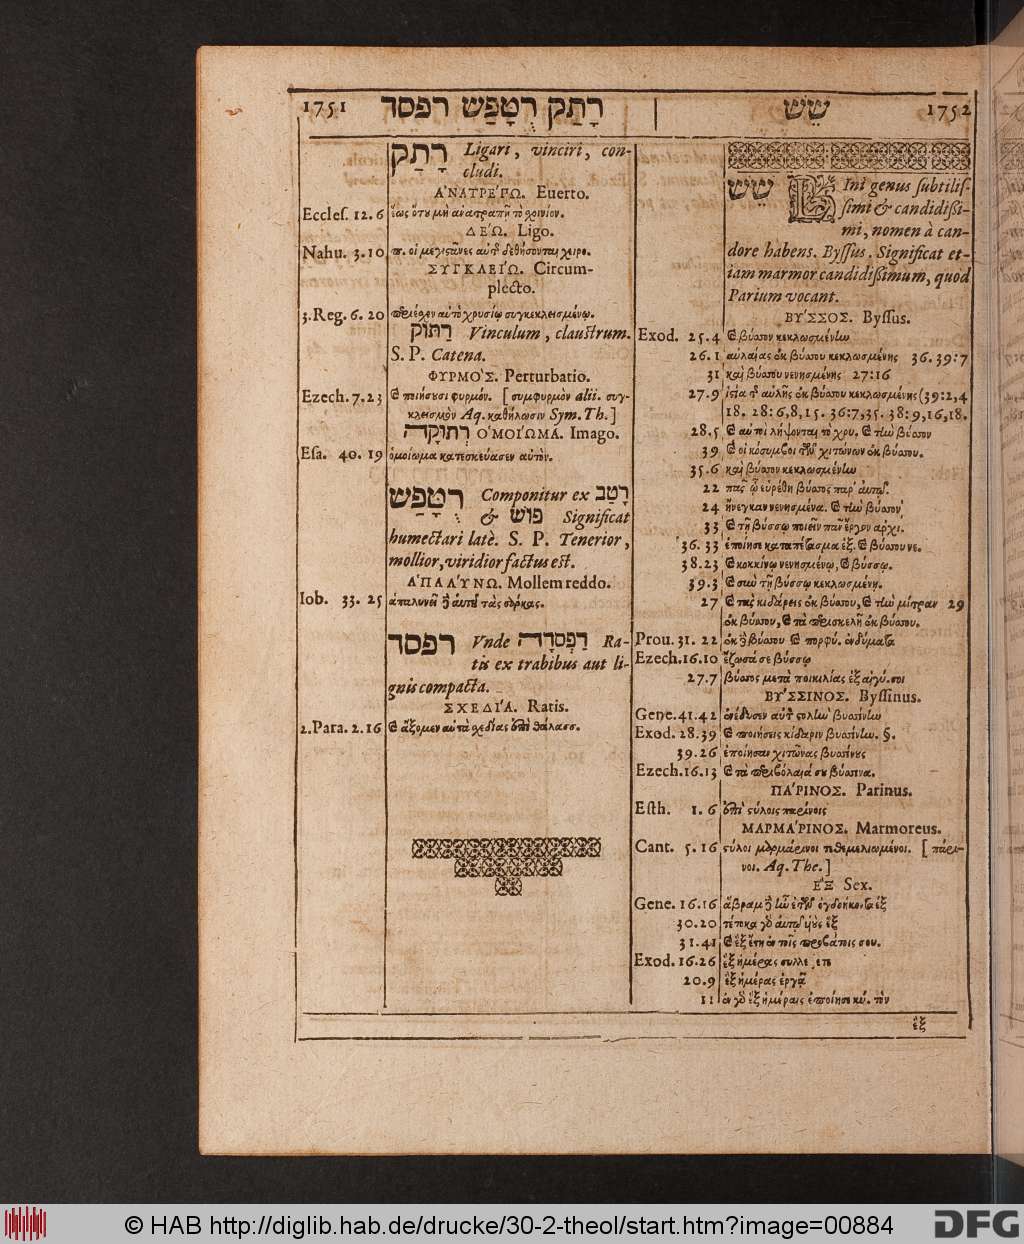 1751 רָתַק רְטָפַּשׁ רפסד
שֵׁשׁ 1752
רָתַק Ligari, vinciri, con-
cludi.
ἈΝΑΤΡΕΠΩ. Euerto.
Eccles. 12.6 ἕως ὅτου μὴ ἀνατραπῇ τὸ χοινίον.
ΔΕΩ. Ligo.
Nahu. 3.10 π. οἱ μεγιστᾶνες αὐτ δεθήσονται χειρο.
ΣΥΓΚΛΕΙΩ. Circum-
plecto.
3. Reg. 6. 20 περιέχεν αὐτὸ χρυσίῳ συγκεκλεισμένῳ.
רַתּוֹק Vinculum, claustrum.
S. P. Catena.
ΦΥΡΜΟΣ. Perturbatio.
Ezech. 7.23 καὶ ποιήσουσι φυρμόν. [ συμφυρμὸν alii. συγ-
κλεισμὸν Aq. καθήλωσιν Sym. Th. ]
רְתוּקָה ὉΜΟΙΩΜΑ. Imago.
Esa. 40. 19 ὁμοίωμα κατεσκεύασεν αὐτόν.
רְטָפַּשׁ Componitur ex רָטַב
& פּוּשׁ Significat
humectari latè. S. P. Tenerior,
mollior, viridior factus est.
ἉΠΑΛΥΝΩ. Mollem reddo.
Iob. 33. 25 ἁπαλυνεῖ δὲ αὐτοῦ τὰς σάρκας.
רפסד Vnde רַפְסֹדָה Ra-
tis ex trabibus aut li-
gnis compacta.
ΣΧΕΔΙΑ. Ratis.
2. Para. 2.16 καὶ ἄξομεν αὐτὰ σχεδίας ἐπὶ θάλασσ.
שֵׁשׁ LIni genus subtilis-
simi & candidißi-
mi, nomen à can-
dore habens. Byssus. Significat et-
iam marmor candidißimum, quod
Parium vocant.
ΒΥΣΣΟΣ. Byssus.
Exod. 25.4 καὶ βύσσον κεκλωσμένην
26.1 αὐλαίας ἐκ βύσσου κεκλωσμένης 36. 39:7
31 καὶ βύσσου νενησμένης 27:16
27.9 ἱστία τ αὐλῆς ἐκ βύσσου κεκλωσμένης (39:2,4
18. 28:6,8,15. 36:7,35. 38:9,16,18.
28.5 καὶ αὐτοὶ λήψονται τὸ χρυ, καὶ τὴν βύσσον
39 καὶ οἱ κόσυμβοι τῶν χιτώνων ἐκ βύσσου.
35.6 καὶ βύσσον κεκλωσμένην
22 πᾶς ᾧ εὑρέθη βύσσος παρ' αὐτῷ.
24 ἤνεγκαν νενησμένα. καὶ τὴν βύσσον
33 καὶ τῇ βύσσῳ ποιεῖν πᾶν ἔργον ἀρχι.
36. 33 ἐποίησε καταπέτασμα ἐξ. καὶ βύσσου νε.
38.23 καὶ κοκκίνῳ νενησμένῳ, καὶ βύσσῳ.
39.3 καὶ σὺν τῇ βύσσῳ κεκλωσμένῃ.
27 καὶ τὰς κιδάρεις ἐκ βύσσου, καὶ τὴν μίτραν 29
ἐκ βύσσου, καὶ τὰ περισκελῆ ἐκ βύσσου.
Prou. 31. 22 ἐκ δὲ βύσσου καὶ πορφύ. ἐνδύματα
Ezech. 16.10 ἔζωσά σε βύσσῳ
27.7 βύσσος μετὰ ποικιλίας ἐξ αἰγύ. σοι
ΒΥΣΣΙΝΟΣ. Byssinus.
Gene. 41.42 ἐνέδυσεν αὐτ στολὴν βυσσίνην
Exod. 28.39 καὶ ποιήσεις κίδαριν βυσσίνην. §.
39.26 ἐποίησαν χιτῶνας βυσσίνους
Ezech. 16.13 καὶ τὰ περιβόλαιά σου βύσσινα.
ΠΑΡΙΝΟΣ. Parinus.
Esth. 1. 6 ἐπὶ στύλοις παρίνοις
ΜΑΡΜΑΡΙΝΟΣ. Marmoreus.
Cant. 5. 16 στύλοι μαρμάρινοι τεθεμελιωμένοι. [ πάρι-
νοι. Aq. The. ]
ἝΞ Sex.
Gene. 16.16 ἄβραμ δὲ ἦν ἐτῶν ὀγδοήκοντα ἓξ
30.20 τέτοκα γὰρ αὐτῷ υἱοὺς ἓξ
31.41 καὶ ἓξ ἔτη ἐν τοῖς προβάτοις σου.
Exod. 16.26 ἓξ ἡμέρας συλλέ ετε
20.9 ἓξ ἡμέρας ἐργᾷ
11 ἐν γὰρ ἓξ ἡμέραις ἐποίησε κύ. τὸν
ἓξ
© HAB http://diglib.hab.de/drucke/30-2-theol/start.htm?image=00884
DFG